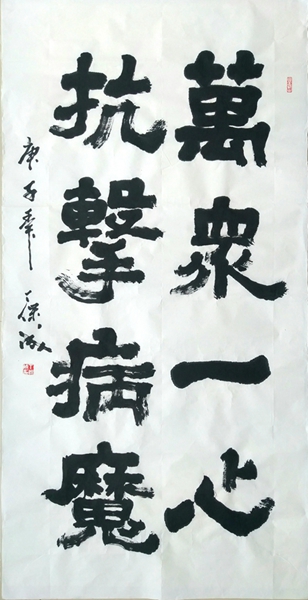 萬衆一心
抗擊病魔
庚子春